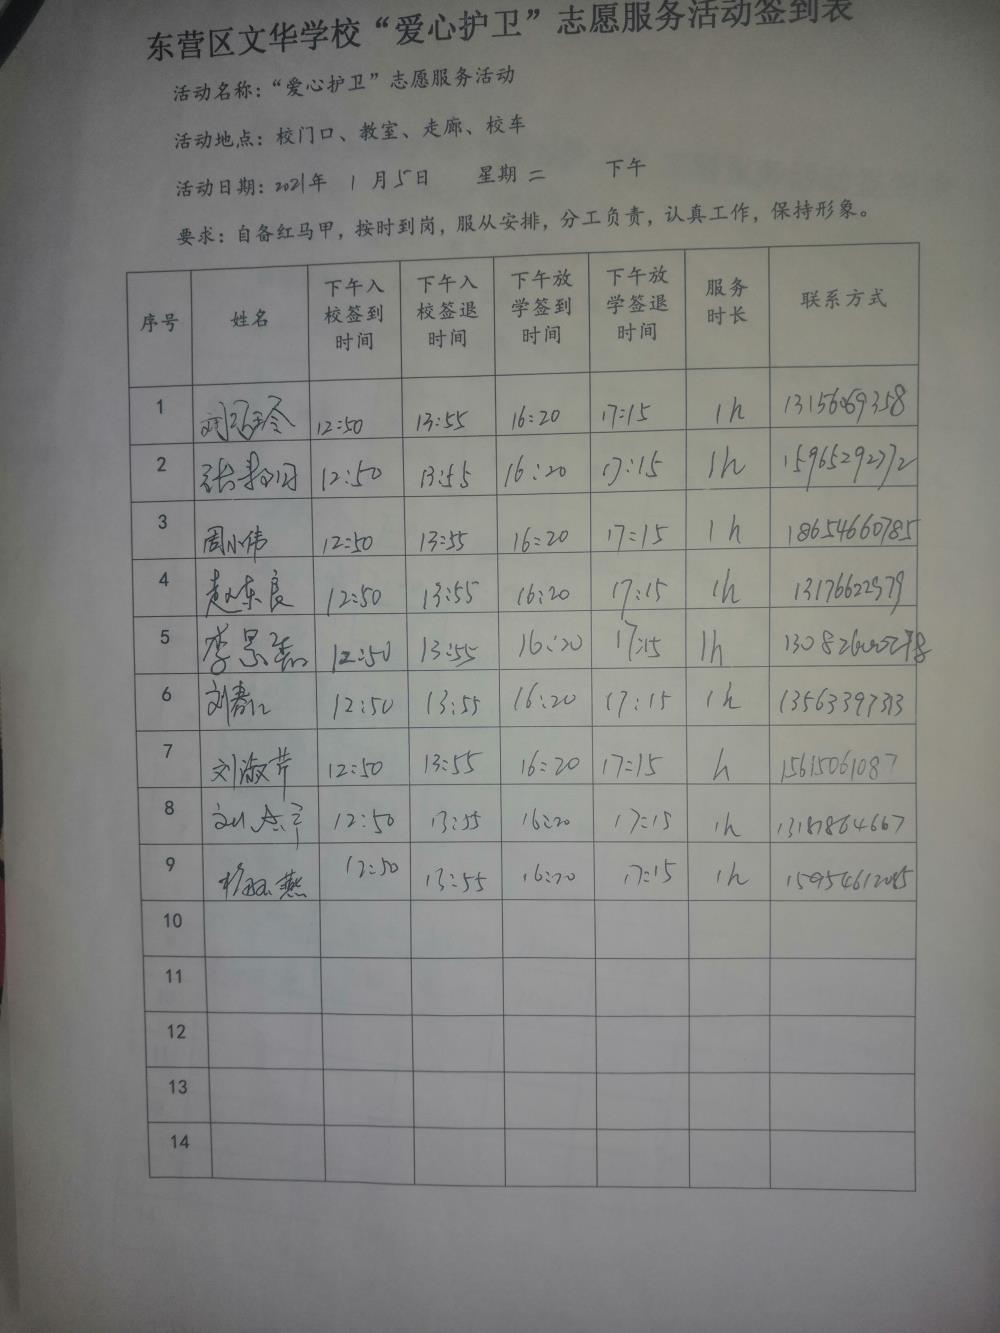 东营区文华学校“爱心护卫”志愿服务活动签到表
活动名称：“爱心护卫”志愿服务活动
活动地点：校门口、教室、走廊、校车
活动日期：2021年 1 月 5 日 星期 二 下午
要求：自备红马甲，按时到岗，服从安排，分工负责，认真工作，保持形象。
序号 姓名 下午入校签到时间 下午入校签退时间 下午放学签到时间 下午放学签退时间 服务时长 联系方式
1 12:50 13:55 16:20 17:15 1h 13156069358
2 12:50 13:55 16:20 17:15 1h 15965292372
3 周小伟 12:50 13:55 16:20 17:15 1h 18654660785
4 赵东良 12:50 13:55 16:20 17:15 1h 13176622979
5 12:50 13:55 16:20 17:15 1h
6 12:50 13:55 16:20 17:15 1h
7 刘淑芹 12:50 13:55 16:20 17:15 h 15615061087
8 12:50 13:55 16:20 17:15 1h 13181864667
9 12:50 13:55 16:20 17:15 1h
10
11
12
13
14